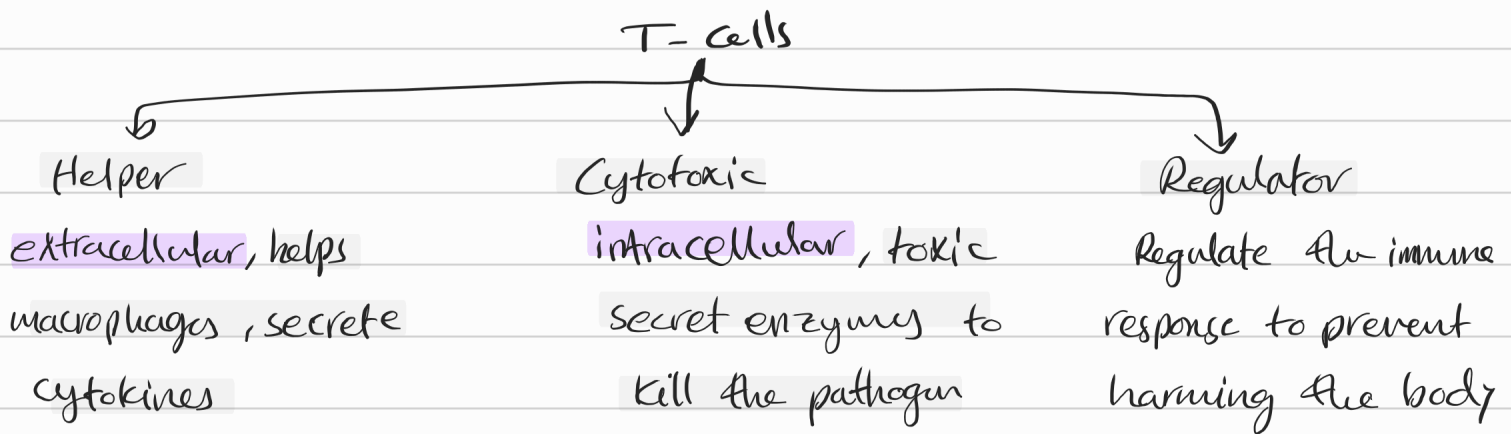 T- Cells
Helper
extracellular, helps
macrophages, secrete
cytokines
Cytotoxic
intracellular, toxic
secret enzymes to
kill the pathogen
Regulator
Regulate the immune
response to prevent
harming the body